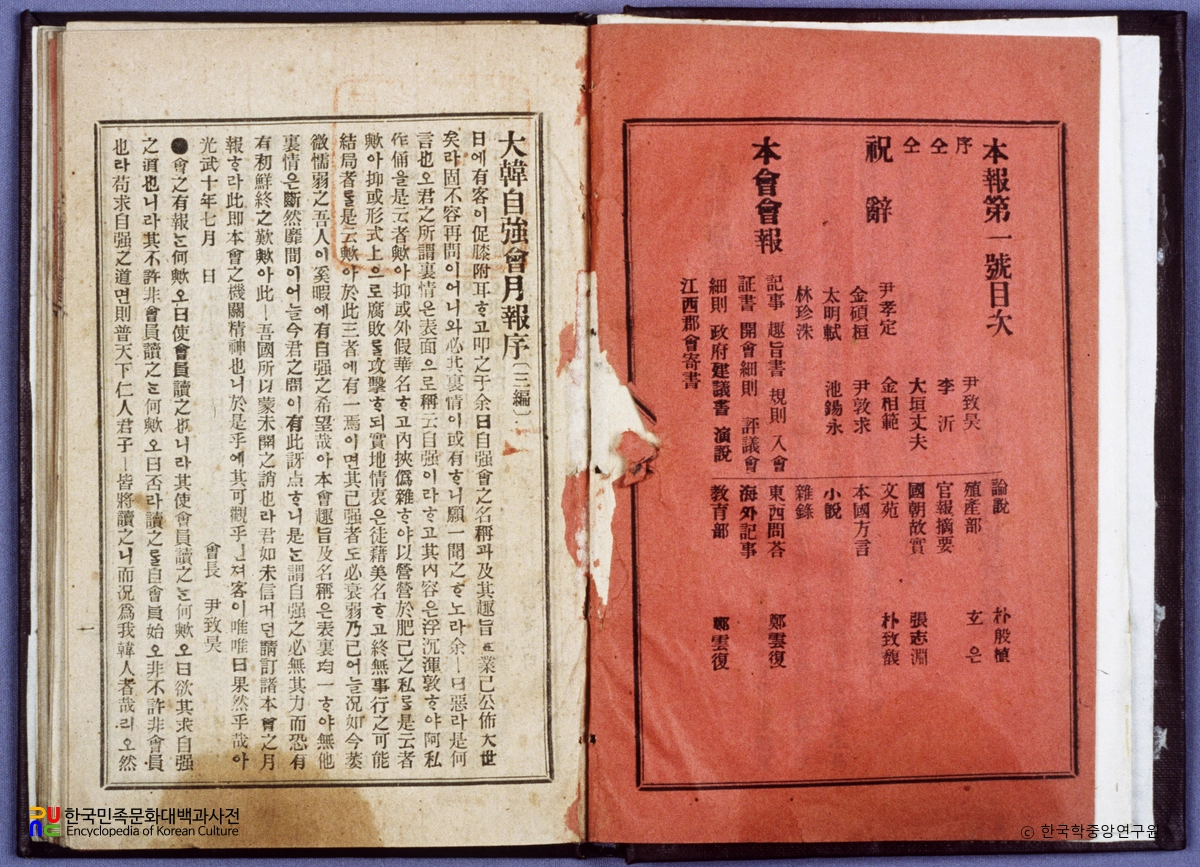 本報第一號目次
序 尹致昊
仝 李 沂
仝 大垣丈夫
祝辭 尹孝定 金相範
金碩桓 尹敦求
太明軾 池錫永
林珍洙
本會會報 記事 趣旨書 規則 入會
證書 開會細則 評議會
細則 政府建議書 演說
江西郡會寄書
論說 朴殷植
殖產部 玄 은
官報摘要
國朝故實 張志淵
文苑 朴致馥
本國方言
小說
雜錄
東西問答 鄭雲復
海外記事
教育部 鄭雲復
大韓自强會月報序(三編)
日에有客이促膝附耳ᄒᆞ고叩之于余曰自强會之名稱과及其趣旨ᄂᆞᆫ業已公佈大世
矣라固不容再問이어니와必其裏情이或有ᄒᆞ니願一聞之ᄒᆞ노라余ㅣ曰惡라是何
言也오君之所謂裏情은表面으로稱云自强이라ᄒᆞ고其內容은浮沉渾敦ᄒᆞ야阿私
作俑을是云者歟아抑或外假華名ᄒᆞ고內挾僞雜ᄒᆞ야以營營於肥己之私ᄅᆞᆯ是云者
歟아抑或形式上으로腐敗ᄅᆞᆯ攻擊ᄒᆞ되實地情衷은徒藉美名ᄒᆞ고終無事行之可能
結局者ᄅᆞᆯ是云歟아於此三者에有一焉이면其已强者도必衰弱乃已어늘况如今萎
微懦弱之吾人이奚暇에有自强之希望哉아本會趣旨及名稱은表裏均一ᄒᆞ야無他
裏情은斷然靡間이어늘今君之問이有此訝点ᄒᆞ니是ᄂᆞᆫ謂自强之必無其力而恐有
有初鮮終之歎歟아此ㅣ吾國所以蒙未開之誚也라君如未信커던請訂諸本會之月
報ᄒᆞ라此即本會之機關精神也니於是乎에其可觀乎ᅟᅵᆫ져客이唯唯曰果然乎哉아
光武十年七月 日 會長 尹致昊
●會之有報ᄂᆞᆫ何歟오曰使會員讀之也니라其使會員讀之ᄂᆞᆫ何歟오曰欲其求自强
之道也니라其不許非會員讀之ᄂᆞᆫ何歟오曰否라讀之ᄅᆞᆯ自會員始오非不許非會員
也라苟求自强之道면則普天下仁人君子ㅣ皆將讀之니而况爲我韓人者哉리오然
一
한국민족문화대백과사전
Encyclopedia of Korean Culture
© 한국학중앙연구원